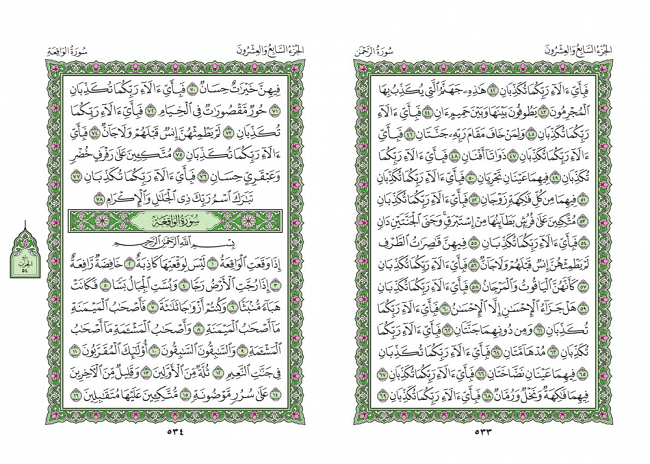 الجُزْءُ السَّابِعُ وَالعِشْرُونَ سُورَةُ الرَّحْمَٰن
فَبِأَيِّ ءَالَآءِ رَبِّكُمَا تُكَذِّبَانِ ٤٢ هَٰذِهِۦ جَهَنَّمُ ٱلَّتِي يُكَذِّبُ بِهَا
ٱلْمُجْرِمُونَ ٤٣ يَطُوفُونَ بَيْنَهَا وَبَيْنَ حَمِيمٍ ءَانٍ ٤٤ فَبِأَيِّ ءَالَآءِ
رَبِّكُمَا تُكَذِّبَانِ ٤٥ وَلِمَنْ خَافَ مَقَامَ رَبِّهِۦ جَنَّتَانِ ٤٦ فَبِأَيِّ
ءَالَآءِ رَبِّكُمَا تُكَذِّبَانِ ٤٧ ذَوَاتَآ أَفْنَانٍ ٤٨ فَبِأَيِّ ءَالَآءِ رَبِّكُمَا
تُكَذِّبَانِ ٤٩ فِيهِمَا عَيْنَانِ تَجْرِيَانِ ٥٠ فَبِأَيِّ ءَالَآءِ رَبِّكُمَا تُكَذِّبَانِ
٥١ فِيهِمَا مِن كُلِّ فَٰكِهَةٍ زَوْجَانِ ٥٢ فَبِأَيِّ ءَالَآءِ رَبِّكُمَا تُكَذِّبَانِ
٥٣ مُتَّكِـِٔينَ عَلَىٰ فُرُشٍۭ بَطَآئِنُهَا مِنْ إِسْتَبْرَقٍ وَجَنَى ٱلْجَنَّتَيْنِ دَانٍ
٥٤ فَبِأَيِّ ءَالَآءِ رَبِّكُمَا تُكَذِّبَانِ ٥٥ فِيهِنَّ قَٰصِرَٰتُ ٱلطَّرْفِ
لَمْ يَطْمِثْهُنَّ إِنسٌ قَبْلَهُمْ وَلَا جَآنٌّ ٥٦ فَبِأَيِّ ءَالَآءِ رَبِّكُمَا تُكَذِّبَانِ
٥٧ كَأَنَّهُنَّ ٱلْيَاقُوتُ وَٱلْمَرْجَانُ ٥٨ فَبِأَيِّ ءَالَآءِ رَبِّكُمَا تُكَذِّبَانِ
٥٩ هَلْ جَزَآءُ ٱلْإِحْسَٰنِ إِلَّا ٱلْإِحْسَٰنُ ٦٠ فَبِأَيِّ ءَالَآءِ رَبِّكُمَا
تُكَذِّبَانِ ٦١ وَمِن دُونِهِمَا جَنَّتَانِ ٦٢ فَبِأَيِّ ءَالَآءِ رَبِّكُمَا
تُكَذِّبَانِ ٦٣ مُدْهَآمَّتَانِ ٦٤ فَبِأَيِّ ءَالَآءِ رَبِّكُمَا تُكَذِّبَانِ
٦٥ فِيهِمَا عَيْنَانِ نَضَّاخَتَانِ ٦٦ فَبِأَيِّ ءَالَآءِ رَبِّكُمَا تُكَذِّبَانِ ٦٧
فِيهِمَا فَٰكِهَةٌ وَنَخْلٌ وَرُمَّانٌ ٦٨ فَبِأَيِّ ءَالَآءِ رَبِّكُمَا تُكَذِّبَانِ ٦٩
٥٣٣
الجُزْءُ السَّابِعُ وَالعِشْرُونَ سُورَةُ الوَاقِعَة
فِيهِنَّ خَيْرَٰتٌ حِسَانٌ ٧٠ فَبِأَيِّ ءَالَآءِ رَبِّكُمَا تُكَذِّبَانِ
٧١ حُورٌ مَّقْصُورَٰتٌ فِي ٱلْخِيَامِ ٧٢ فَبِأَيِّ ءَالَآءِ رَبِّكُمَا
تُكَذِّبَانِ ٧٣ لَمْ يَطْمِثْهُنَّ إِنسٌ قَبْلَهُمْ وَلَا جَآنٌّ ٧٤ فَبِأَيِّ
ءَالَآءِ رَبِّكُمَا تُكَذِّبَانِ ٧٥ مُتَّكِـِٔينَ عَلَىٰ رَفْرَفٍ خُضْرٍ
وَعَبْقَرِيٍّ حِسَانٍ ٧٦ فَبِأَيِّ ءَالَآءِ رَبِّكُمَا تُكَذِّبَانِ ٧٧
تَبَٰرَكَ ٱسْمُ رَبِّكَ ذِي ٱلْجَلَٰلِ وَٱلْإِكْرَامِ ٧٨
سُورَةُ الوَاقِعَةِ
بِسْمِ ٱللَّهِ ٱلرَّحْمَٰنِ ٱلرَّحِيمِ
إِذَا وَقَعَتِ ٱلْوَاقِعَةُ ١ لَيْسَ لِوَقْعَتِهَا كَاذِبَةٌ ٢ خَافِضَةٌ رَّافِعَةٌ
٣ إِذَا رُجَّتِ ٱلْأَرْضُ رَجًّا ٤ وَبُسَّتِ ٱلْجِبَالُ بَسًّا ٥ فَكَانَتْ
هَبَآءً مُّنۢبَثًّا ٦ وَكُنتُمْ أَزْوَٰجًا ثَلَٰثَةً ٧ فَأَصْحَٰبُ ٱلْمَيْمَنَةِ
مَآ أَصْحَٰبُ ٱلْمَيْمَنَةِ ٨ وَأَصْحَٰبُ ٱلْمَشْـَٔمَةِ مَآ أَصْحَٰبُ
ٱلْمَشْـَٔمَةِ ٩ وَٱلسَّٰبِقُونَ ٱلسَّٰبِقُونَ ١٠ أُوْلَٰٓئِكَ ٱلْمُقَرَّبُونَ ١١
فِي جَنَّٰتِ ٱلنَّعِيمِ ١٢ ثُلَّةٌ مِّنَ ٱلْأَوَّلِينَ ١٣ وَقَلِيلٌ مِّنَ ٱلْأٓخِرِينَ
١٤ عَلَىٰ سُرُرٍ مَّوْضُونَةٍ ١٥ مُّتَّكِـِٔينَ عَلَيْهَا مُتَقَٰبِلِينَ ١٦
٥٣٤
٥٤